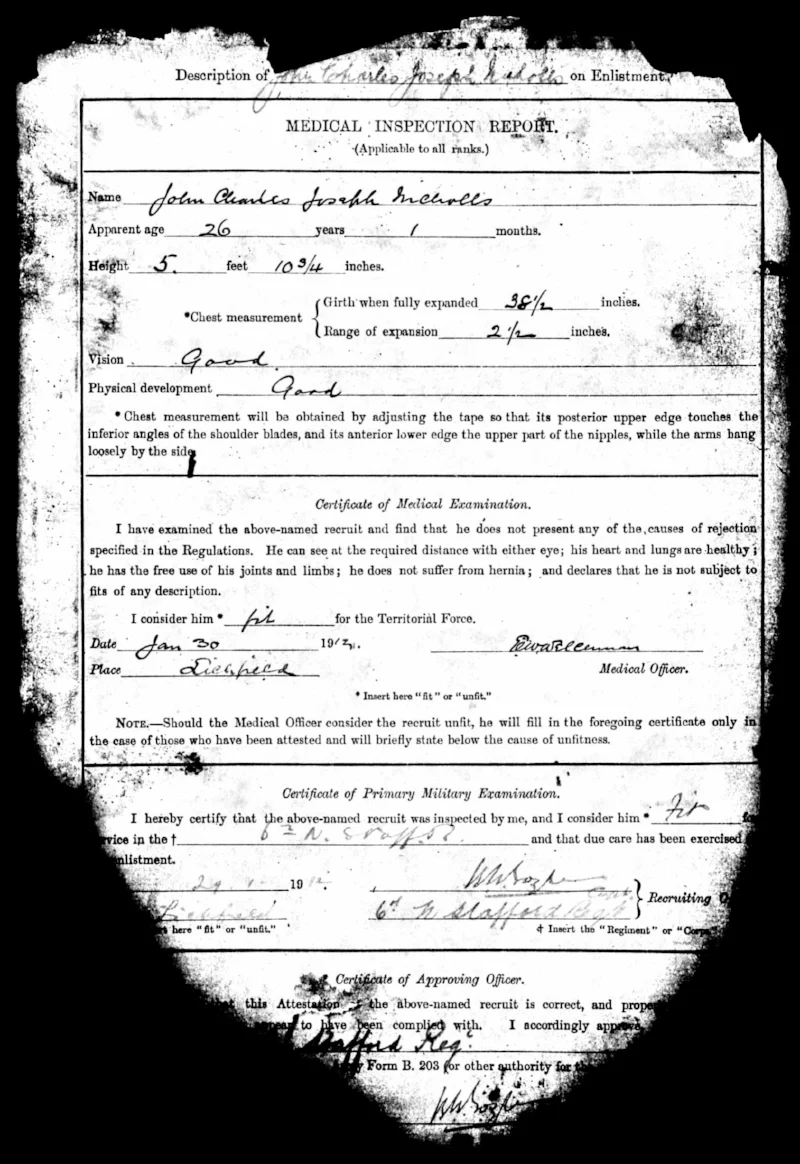 Description of John Charles Joseph Nicholls on Enlistment.
MEDICAL INSPECTION REPORT.
(Applicable to all ranks.)
Name John Charles Joseph Nicholls
Apparent age 26 years 1 months.
Height 5 feet 10 3/4 inches.
Girth when fully expanded 38 1/2 inches.
*Chest measurement
Range of expansion 2 1/2 inches.
Vision Good
Physical development Good
* Chest measurement will be obtained by adjusting the tape so that its posterior upper edge touches the
inferior angles of the shoulder blades, and its anterior lower edge the upper part of the nipples, while the arms hang
loosely by the side
Certificate of Medical Examination.
I have examined the above-named recruit and find that he does not present any of the causes of rejection
specified in the Regulations. He can see at the required distance with either eye; his heart and lungs are healthy;
he has the free use of his joints and limbs; he does not suffer from hernia; and declares that he is not subject to
fits of any description.
I consider him * fit for the Territorial Force.
Date Jan 30 1912.
Place Lichfield Medical Officer.
* Insert here "fit" or "unfit."
NOTE.—Should the Medical Officer consider the recruit unfit, he will fill in the foregoing certificate only in
the case of those who have been attested and will briefly state below the cause of unfitness.
Certificate of Primary Military Examination.
I hereby certify that the above-named recruit was inspected by me, and I consider him * Fit
vice in the † 6th N. Stafford and that due care has been exercised
nlistment.
29 1912
Lichfield 6th N Stafford Regt Recruiting O
here "fit" or "unfit." † Insert the "Regiment" or "Corps
Certificate of Approving Officer.
this Attestation the above-named recruit is correct, and prope
to have been complied with. I accordingly approve
Stafford Regt
Form B. 203 for other authority for